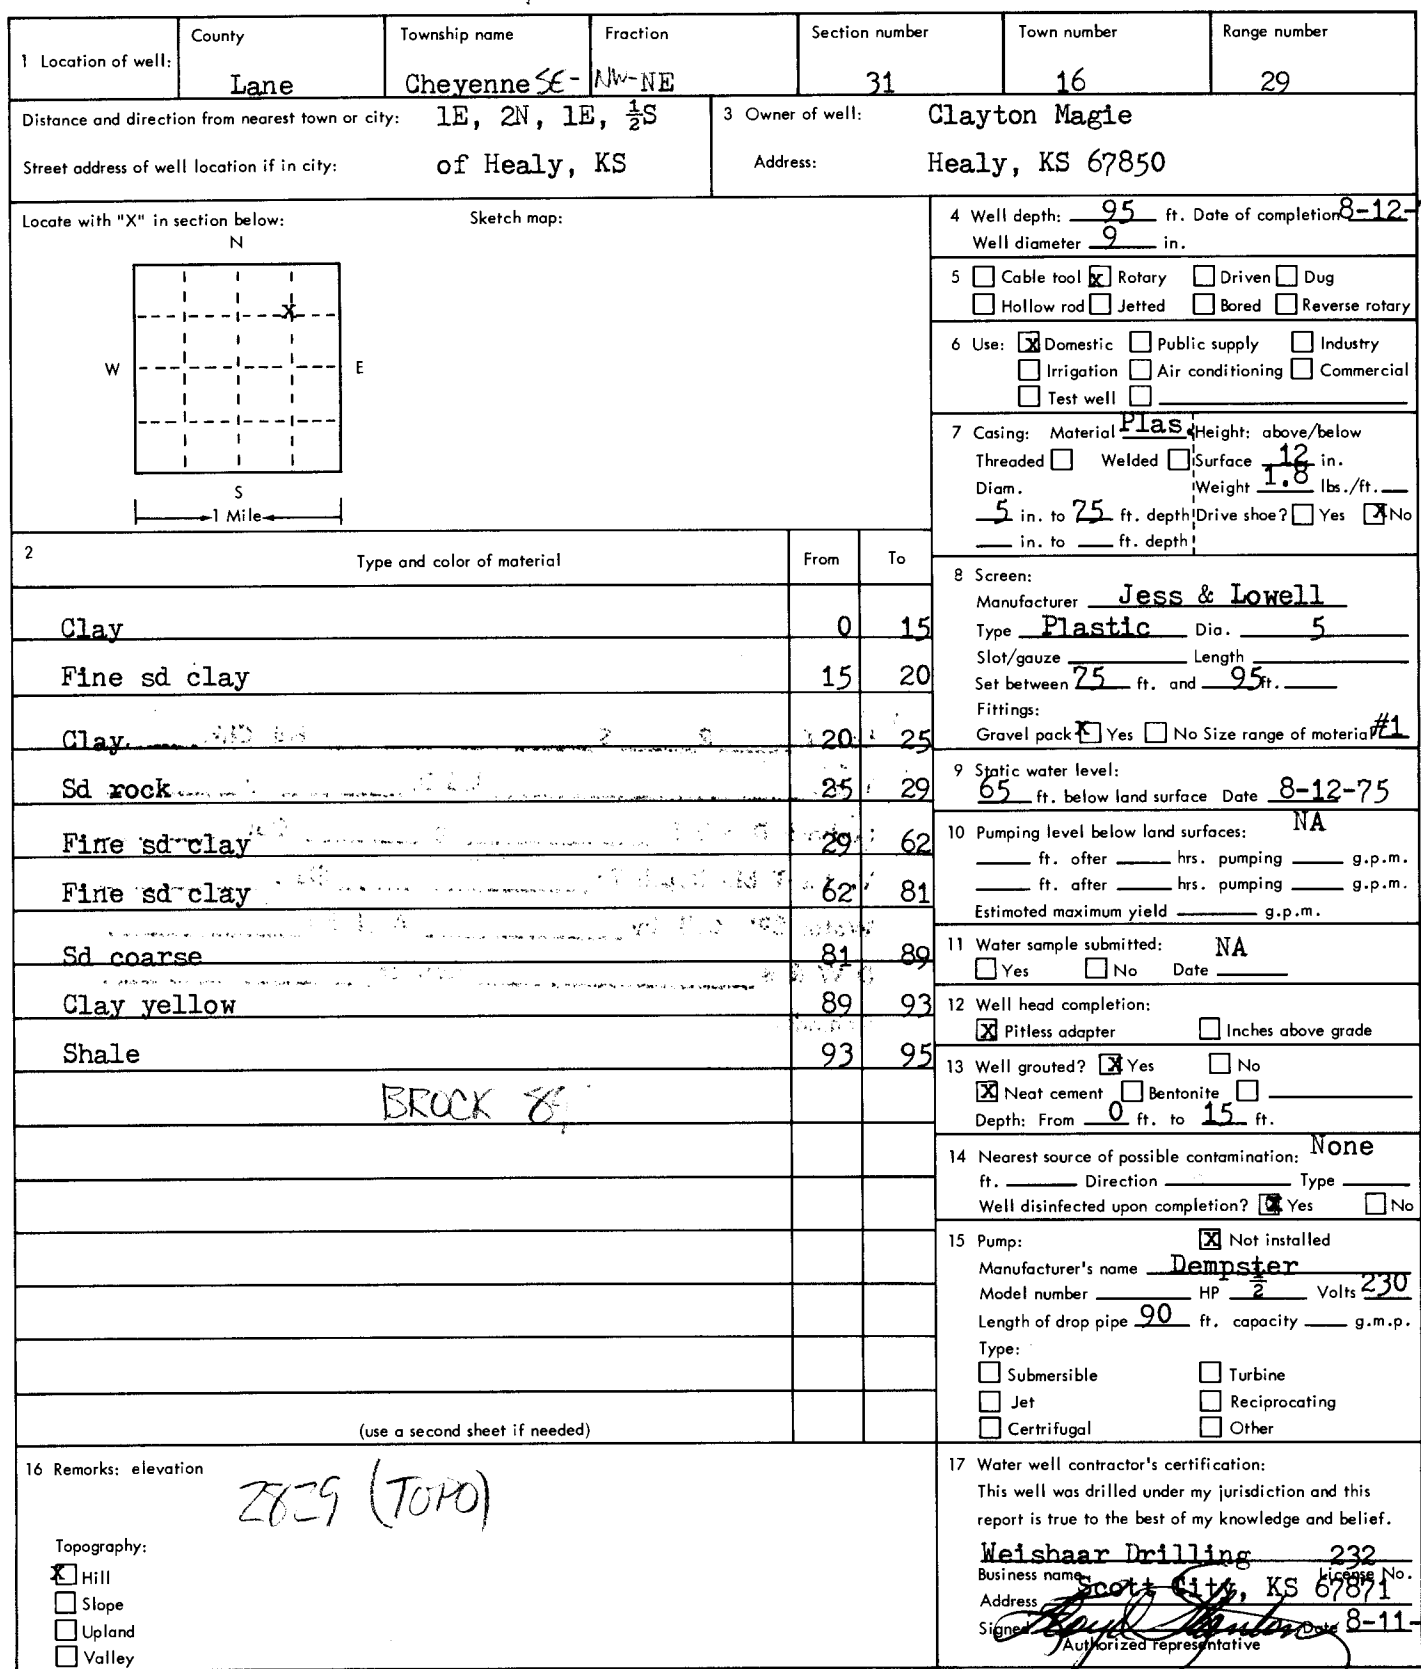 County Township name Fraction Section number Town number Range number
1 Location of well: Lane Cheyenne SE- NW-NE 31 16 29
Distance and direction from nearest town or city: 1E, 2N, 1E, ½S
Street address of well location if in city: of Healy, KS
3 Owner of well: Clayton Magie
Address: Healy, KS 67850
Locate with "X" in section below: Sketch map:
N
X
W E
S
1 Mile
2 Type and color of material From To
Clay 0 15
Fine sd clay 15 20
Clay 20 25
Sd rock 25 29
Fine sd clay 29 62
Fine sd clay 62 81
Sd coarse 81 89
Clay yellow 89 93
Shale 93 95
BROCK 89
(use a second sheet if needed)
4 Well depth: 95 ft. Date of completion 8-12-
Well diameter 9 in.
5 Cable tool X Rotary Driven Dug
Hollow rod Jetted Bored Reverse rotary
6 Use: X Domestic Public supply Industry
Irrigation Air conditioning Commercial
Test well
7 Casing: Material Plas. Height: above/below
Threaded Welded Surface 12 in.
Diam. Weight 1.8 lbs./ft.
5 in. to 75 ft. depth Drive shoe? Yes X No
in. to ft. depth
8 Screen:
Manufacturer Jess & Lowell
Type Plastic Dia. 5
Slot/gauze Length
Set between 75 ft. and 95 ft.
Fittings:
Gravel pack X Yes No Size range of material #1
9 Static water level:
65 ft. below land surface Date 8-12-75
10 Pumping level below land surfaces: NA
ft. after hrs. pumping g.p.m.
ft. after hrs. pumping g.p.m.
Estimated maximum yield g.p.m.
11 Water sample submitted: NA
Yes No Date
12 Well head completion:
X Pitless adapter Inches above grade
13 Well grouted? X Yes No
X Neat cement Bentonite
Depth: From 0 ft. to 15 ft.
14 Nearest source of possible contamination: None
ft. Direction Type
Well disinfected upon completion? X Yes No
15 Pump: X Not installed
Manufacturer's name Dempster
Model number HP ½ Volts 230
Length of drop pipe 90 ft. capacity g.m.p.
Type:
Submersible Turbine
Jet Reciprocating
Certrifugal Other
16 Remarks: elevation
2829 (TOPO)
Topography:
X Hill
Slope
Upland
Valley
17 Water well contractor's certification:
This well was drilled under my jurisdiction and this
report is true to the best of my knowledge and belief.
Weishaar Drilling 232
Business name License No.
Address Scott City, KS 67871
Signed Date 8-11-
Authorized representative